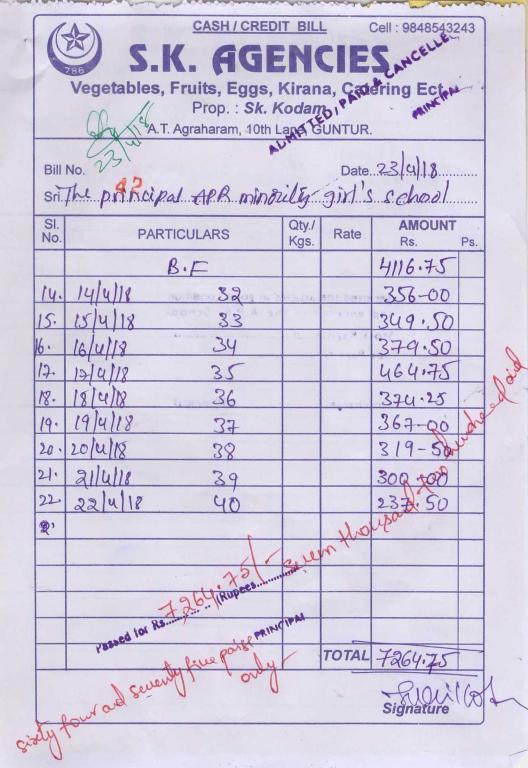 CASH / CREDIT BILL Cell : 9848543243
786
S.K. AGENCIES
Vegetables, Fruits, Eggs, Kirana, Catering Ect.
Prop. : Sk. Kodam
A.T. Agraharam, 10th Lane, GUNTUR.
ADMITTED, PAID & CANCELLED
PRINCIPAL
23/4/18
Bill No. 42 Date 23/4/18
Sri The principal APR minority girl's school
Sl. No. PARTICULARS Qty./ Kgs. Rate AMOUNT Rs. Ps.
B.F 4116.75
14. 14/4/18 32 356-00
15. 15/4/18 33 349.50
16. 16/4/18 34 379.50
17. 17/4/18 35 464.75
18. 18/4/18 36 374.25
19. 19/4/18 37 367-00
20. 20/4/18 38 319-50
21. 21/4/18 39 300-00
22. 22/4/18 40 237.50
Passed for Rs. 7264.75/- (Rupees Seven thousand two hundred and
sixty four and seventy five paise
only
PRINCIPAL
TOTAL 7264.75
Signature